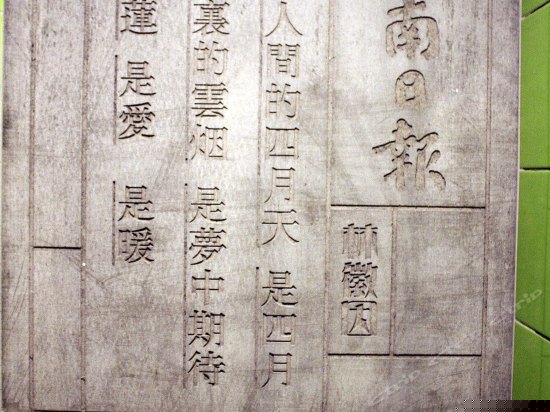 南日報
林徽因
人間的四月天 是四月
裏的雲烟 是夢中期待
蓮 是愛 是暖